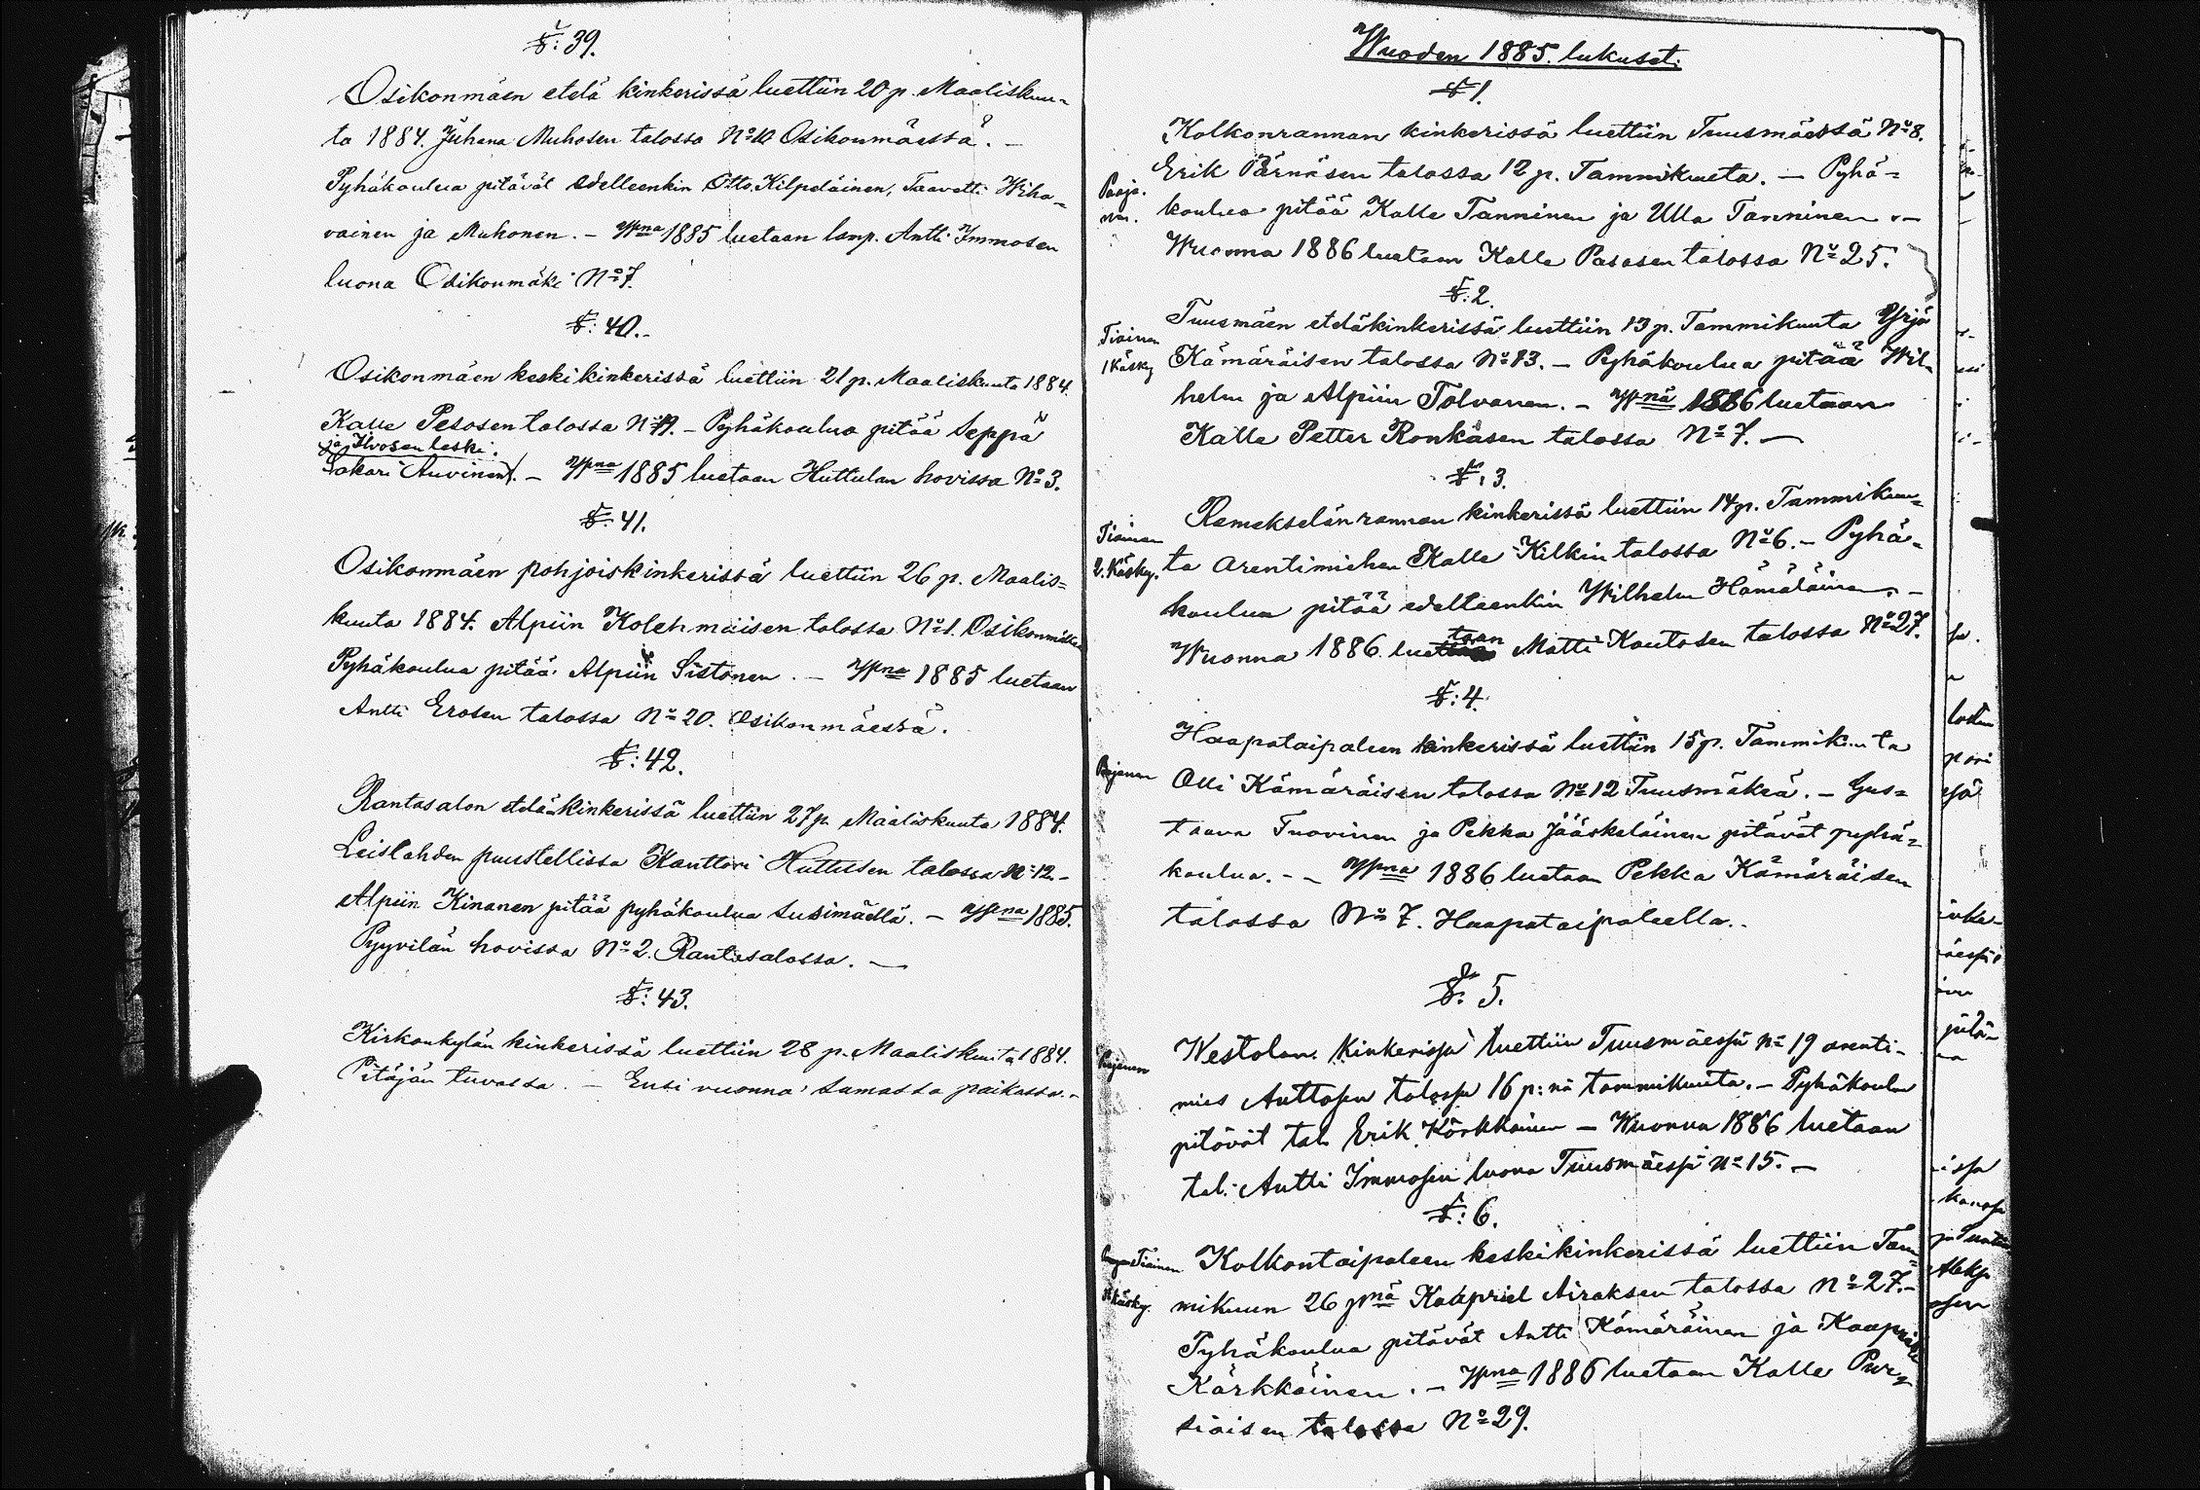 §: 39.
Osikonmäen etelä kinkerissä luettiin 20 p. Maaliskuu-
ta 1884. Juhana Muhosen talossa No 10 Osikonmäessä. –
Pyhäkoulua pitävät edelleenkin Otto Kilpeläinen, Taavetti Wiha-
vainen ja Muhonen. – Wna 1885 luetaan lamp. Antti Immosen
luona Osikonmäki No 7.
§: 40. –
Osikonmäen keskikinkerissä luettiin 21 p. Maaliskuuta 1884.
Kalle Pesosen talossa No 19. – Pyhäkoulua pitää Seppä
ja Ilvosen leski.
Sakari Auvinen. – Wna 1885 luetaan Huttulan hovissa No 3.
§: 41.
Osikonmäen pohjoiskinkerissä luettiin 26 p. Maalis=
kuuta 1884. Alpiin Kolehmaisen talossa No 1. Osikonmäki
Pyhäkoulua pitää Alpiin Sistonen. – Wna 1885 luetaan
Antti Erosen talossa No 20. Osikonmäessä.
§: 42.
Rantasalon eteläkinkerissä luettiin 27 p. Maaliskuuta 1884.
Leislahden puustellissa Kanttori Huttusen talossa No 12 –
Alpiin Kinanen pitää pyhäkoulua Susimäellä. – Wna 1885.
Pyyvilän hovissa No 2. Rantasalossa. –
§: 43.
Kirkonkylän kinkerissä luettiin 28 p. Maaliskuuta 1884.
Pitäjän tuvassa. – Ensi vuonna samassa paikassa. –
Wuoden 1885. lukuset.
§ 1.
Kolkonrannan kinkerissä luettiin Tuusmäessä No 8.
Erik Pärnäsen talossa 12 p. Tammikuuta. – Pyhä=
Paaja-
nen.
koulua pitää Kalle Tanninen ja Ulla Tanninen. –
Wuonna 1886 luetaan Kalle Pasasen talossa No 25.
§: 2.
Tuusmäen eteläkinkerissä luettiin 13 p. Tammikuuta Yrjö
Tiainen
1 Käsky
Kämäräisen talossa No 13. – Pyhäkoulua pitää Wil-
helm ja Alpiin Tolvanen. – Wnä 1886 luetaan
Kalle Petter Ronkäsen talossa No 7. –
§: 3.
Remekselänrannan kinkerissä luettiin 14 p. Tammikuu=
Tiainen
2. Käsky.
ta arentimiehen Kalle Kilkin talossa No 6. – Pyhä=
koulua pitää edelleenkin Wilhelm Hämäläinen. –
Wuonna 1886. luetaan Matti Kautosen talossa No 27.
§: 4.
Haapataipaleen kinkerissä luettiin 15 p. Tammikuuta
Pajanen
Olli Kämäräisen talossa No 12 Tuusmäkeä. – Gus=
taava Tuovinen ja Pekka Jääskeläinen pitävät pyhä=
koulua. – – Wna 1886 luetaan Pekka Kämäräisen
talossa No 7. Haapataipaleella. –
§: 5.
Westolan Kinkerissä luettiin Tuusmäessä No 19 arenti-
mies Anttosen talossa 16 p:nä tammikuuta. – Pyhäkoulua
pitävät tal. Erik Körkkäinen – Wuonna 1886 luetaan
tal. Antti Immosen luona Tuusmäessä No 15. –
§: 6.
Kolkontaipaleen keskikinkerissä luettiin Tam=
Tiainen
Käsky.
mikuun 26 pnä Kaapriel Airaksen talossa No 27. –
Pyhäkoulua pitävät Antti Kämäräinen ja Kaapriel
Kärkkäinen. – Wna 1886 luetaan Kalle Pur=
siaisen talossa No 29.